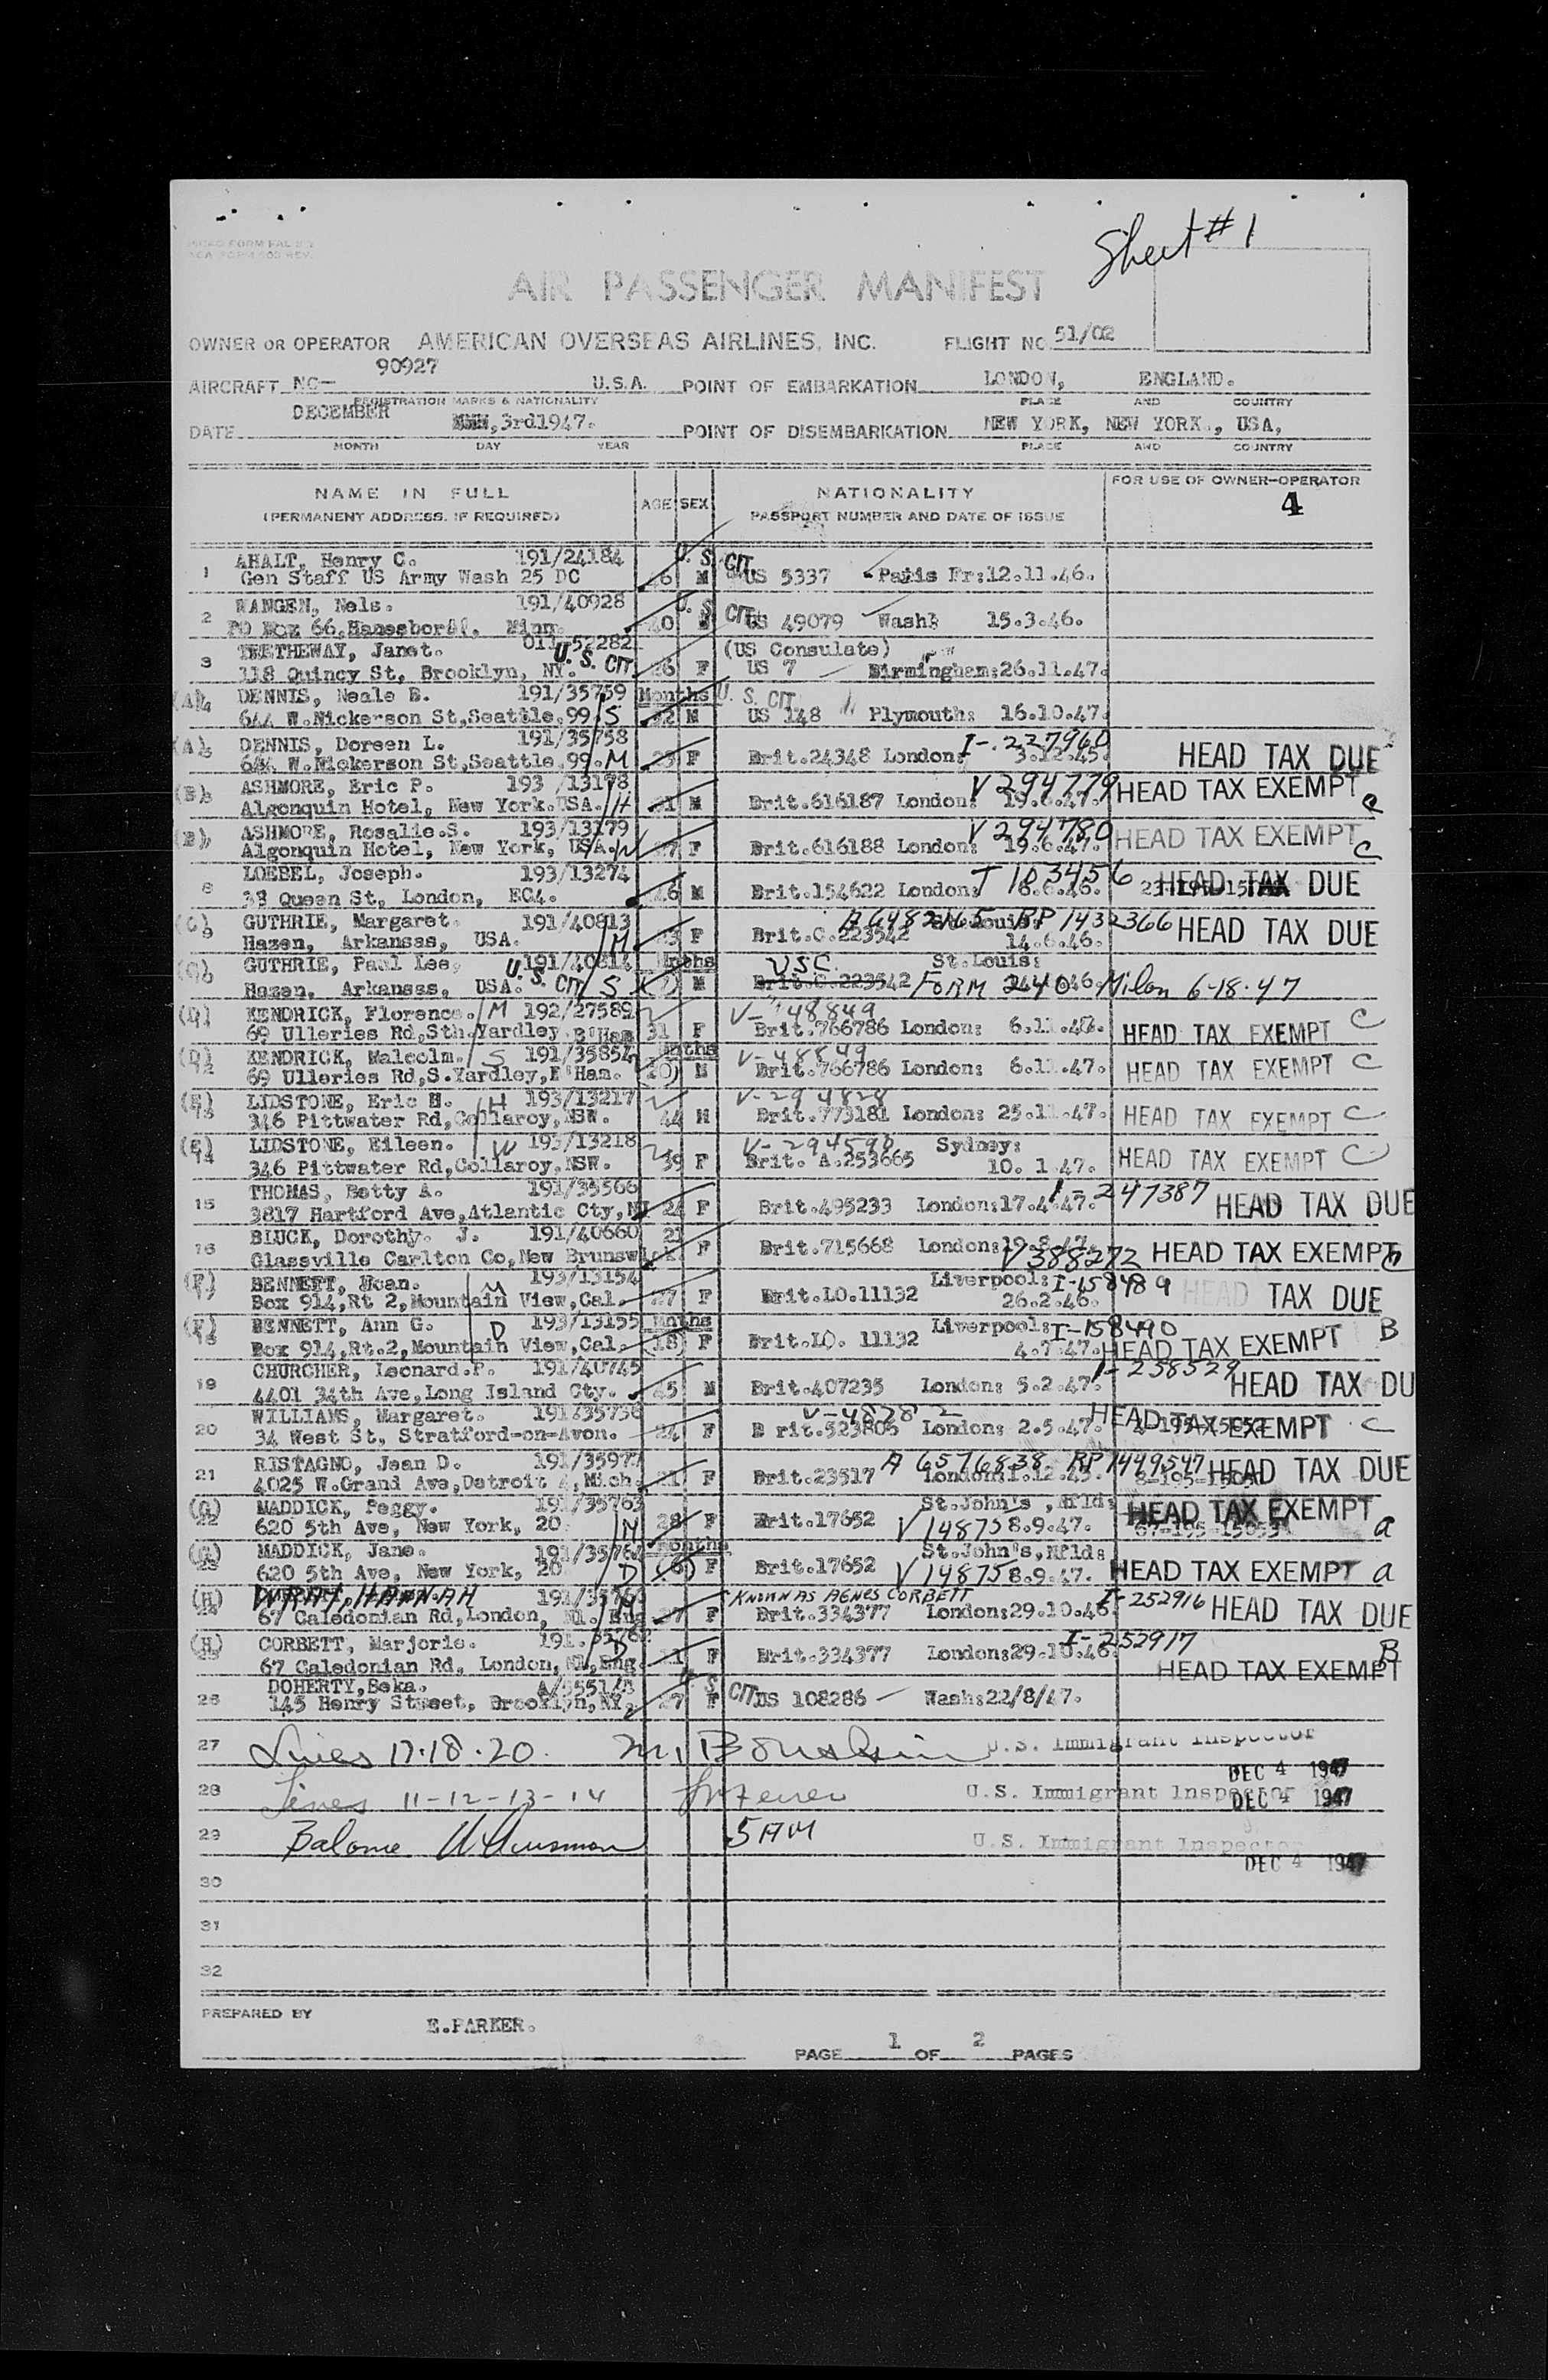 Sheet #1
AIR PASSENGER MANIFEST
OWNER OR OPERATOR AMERICAN OVERSEAS AIRLINES, INC. FLIGHT NO 51/02
90927
AIRCRAFT NC— U.S.A. POINT OF EMBARKATION LONDON, ENGLAND.
REGISTRATION MARKS & NATIONALITY PLACE AND COUNTRY
DECEMBER
DATE 3rd1947. POINT OF DISEMBARKATION NEW YORK, NEW YORK., USA,
MONTH DAY YEAR PLACE AND COUNTRY
NAME IN FULL AGE SEX NATIONALITY FOR USE OF OWNER-OPERATOR
(PERMANENT ADDRESS, IF REQUIRED) PASSPORT NUMBER AND DATE OF ISSUE 4
1 AHALT, Henry C. 191/24184 U. S. CIT
Gen Staff US Army Wash 25 DC 46 M US 5337 Paris Fr:12.11.46.
2 WANGEN, Nels. 191/40928 U. S. CIT
PO Box 66, Minn. 40 M US 49079 Wash: 15.3.46.
3 TRETHEWAY, Janet. 52282 (US Consulate)
118 Quincy St, Brooklyn, NY. U. S. CIT 26 F US 7 Birmingham:26.11.47.
(A) 4 DENNIS, Neale B. 191/35759 Months U. S. CIT
644 W.Nickerson St,Seattle,99. S M US 148 Plymouth: 16.10.47.
(A) 5 DENNIS, Doreen L. 191/35758 I-.227960
644 W.Nickerson St,Seattle,99. M 23 F Brit.24348 London: 3.12.45. HEAD TAX DUE
(B) 6 ASHMORE, Eric P. 193 /13178 V 294779 HEAD TAX EXEMPT a
Algonquin Hotel, New York.USA. H M Brit.616187 London: 19.6.47.
(B) 7 ASHMORE, Rosalie.S. 193/13179 V 294780 HEAD TAX EXEMPT C
Algonquin Hotel, New York, USA. W F Brit.616188 London: 19.6.47.
8 LOEBEL, Joseph. 193/13274 T 103456 HEAD TAX DUE
38 Queen St, London, EC4. 26 M Brit.154622 London: 6.6.46.
(C) 9 GUTHRIE, Margaret. 191/40813 A6482165 RP 1432366 HEAD TAX DUE
Hazen, Arkansas, USA. M 23 F Brit.C.223542 St.Louis: 14.6.46.
(C) 10 GUTHRIE, Paul Lee, 191/40814 Mnths USC St.Louis:
Hazen, Arkansas, USA. U. S. CIT S M Brit.C.223542 FORM 240 Milan 6-18-47
(D) 11 KENDRICK, Florence. M 192/27589 V-48849
69 Ulleries Rd,Sth.Yardley B'Ham 31 F Brit.766786 London: 6.11.47. HEAD TAX EXEMPT C
(D) 12 KENDRICK, Malcolm. S 191/35854 Mnths V-48849
69 Ulleries Rd,S.Yardley,B'Ham. (20) M Brit.766786 London: 6.11.47. HEAD TAX EXEMPT C
(E) 13 LIDSTONE, Eric H. H 193/13217 V-294828
346 Pittwater Rd,Collaroy,NSW. 44 M Brit.773181 London: 25.11.47. HEAD TAX EXEMPT C
(E) 14 LIDSTONE, Eileen. W 193/13218 V-294590 Sydney:
346 Pittwater Rd,Collaroy,NSW. 39 F Brit. A.253665 10. 1.47. HEAD TAX EXEMPT C
15 THOMAS, Betty A. 191/35566 I-247387
3817 Hartford Ave,Atlantic Cty,NJ 24 F Brit.495233 London:17.4.47. HEAD TAX DUE
16 BLUCK, Dorothy. J. 191/40660 21
Glassville Carlton Co,New Brunswick F Brit.715668 London:19.8.47. V388272 HEAD TAX EXEMPT
(F) 17 BENNETT, Joan. M 193/13154 Liverpool: I-158489
Box 914,Rt 2,Mountain View,Cal. 27 F Brit.LO.11132 26.2.46. HEAD TAX DUE
(F) 18 BENNETT, Ann G. D 193/13155 Mnths Liverpool: I-158490
Box 914,Rt.2,Mountain View,Cal. (18) F Brit.LO. 11132 4.7.47. HEAD TAX EXEMPT B
19 CHURCHER, Leonard.P. 191/40745 I-238529
4401 34th Ave,Long Island Cty. 45 M Brit.407235 London: 5.2.47. HEAD TAX DU
20 WILLIAMS, Margaret. 191/35736 V-48782
34 West St, Stratford-on-Avon. 24 F B rit.523806 London: 2.5.47. HEAD TAX EXEMPT C
21 RISTAGNO, Jean D. 191/35977 A 6576838 RP1449547
4025 W.Grand Ave,Detroit 4,Mich. 21 F Brit.23517 London: HEAD TAX DUE
(G) 22 MADDICK, Peggy. 191/35763 St.John's ,Nfld:
620 5th Ave, New York, 20 M 28 F Brit.17652 V14875 8.9.47. HEAD TAX EXEMPT a
(G) 23 MADDICK, Jane. 191/35764 Months St.John's,Nfld:
620 5th Ave, New York, 20 D (6) F Brit.17652 V14875 8.9.47. HEAD TAX EXEMPT a
(H) 24 WRAY, HANNAH KNOWN AS AGNES CORBETT I-252916
67 Caledonian Rd,London, N1. Eng F Brit.334377 London:29.10.46. HEAD TAX DUE
(H) 25 CORBETT, Marjorie. D I-252917 B
67 Caledonian Rd, London, N1,Eng. 11 F Brit.334377 London:29.10.46. HEAD TAX EXEMPT
26 DOHERTY,Beka. U. S. CIT
145 Henry Street, Brooklyn,NY. 27 F US 108286 Wash:22/8/47.
27 Lines 17.18.20. U.S. Immigrant Inspector
DEC 4 1947
28 Lines 11-12-13-14 U.S. Immigrant Inspector
DEC 4 1947
29 Balance U.S. Immigrant Inspector
DEC 4 1947
30
31
32
PREPARED BY E.PARKER.
PAGE 1 OF 2 PAGES